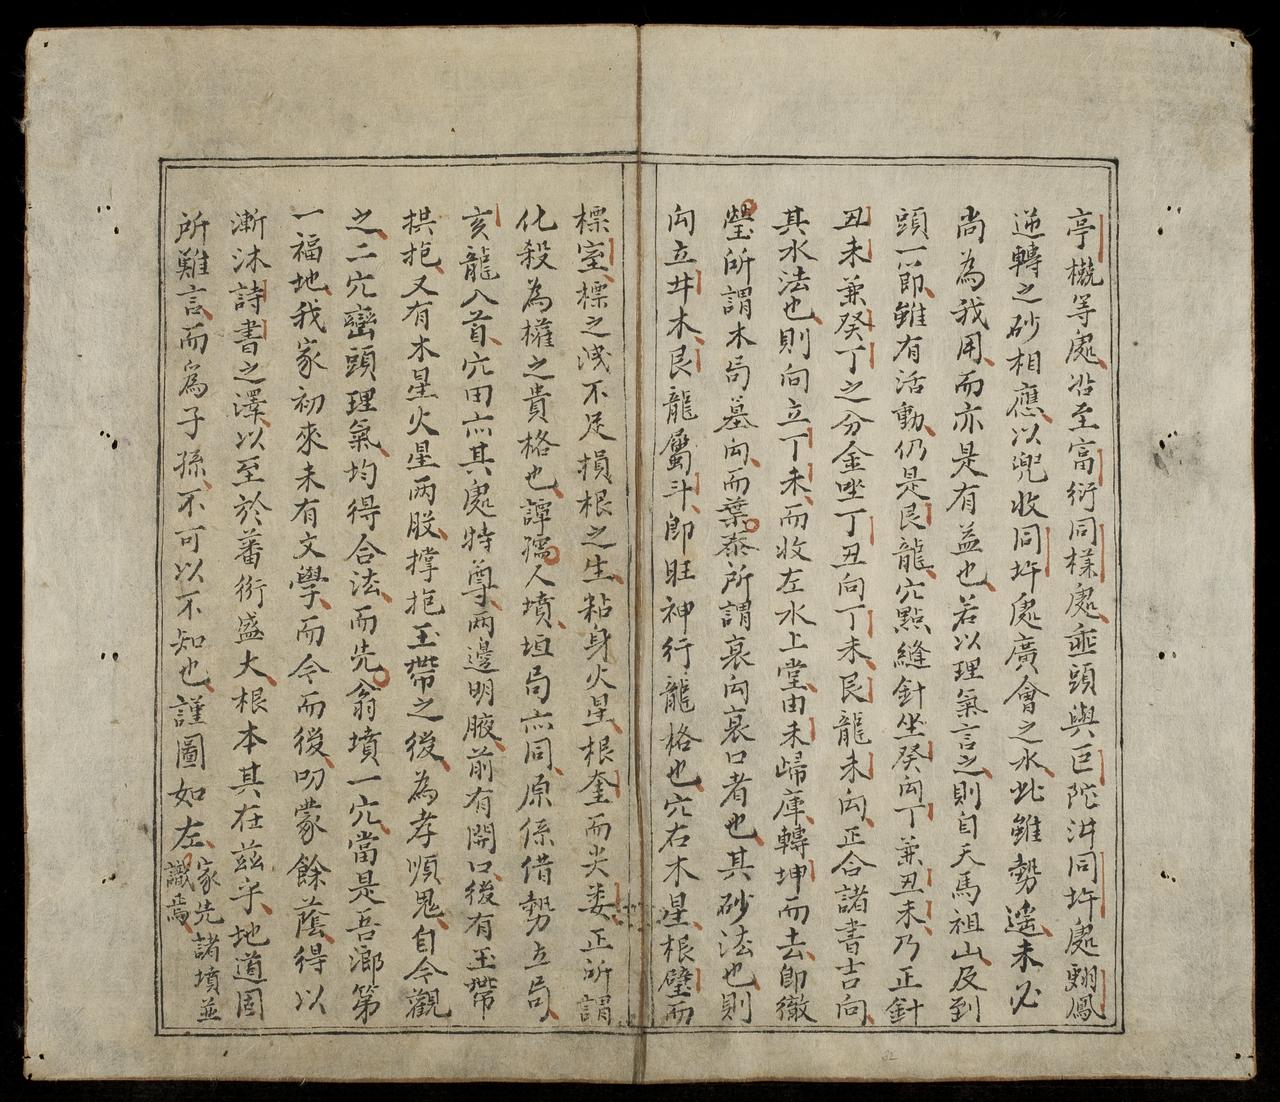 亭櫈等處沿至富衍同样處垂頭與巨陀汫同圲處翺鳳
逆轉之砂相應以兜收同圲處廣會之水此雖勢遙未必
尚為我用而亦是有益也若以理氣言之則自天馬祖山及到
頭一節雖有活動仍是艮龍穴點縫針坐癸向丁兼丑未乃正針
丑未兼癸丁之分金坐丁丑向丁未艮龍未向正合諸書吉向
其水法也則向立丁未而收左水上堂由未歸庫轉坤而去即徹
瑩所謂木局墓向而葉泰所謂衰向衰口者也其砂法也則
向立井木艮龍屬斗即旺神行龍格也穴右木星根壁而
標室標之洩不足損根之生粘身火星根奎而尖婁正所謂
化殺為權之貴格也譚孺人墳垣局亦同原係借勢立局
亥龍入首穴田亦其處特尊兩邊明腋前有開口後有玉帶
拱抱又有木星火星两股撑抱玉帶之後為孝順鬼自今觀
之二穴巒頭理氣均得合法而先翁墳一穴當是吾鄉第
一福地我家初來未有文學而今而後叨蒙餘蔭得以
漸沐詩書之澤以至於蕃衍盛大根本其在茲乎地道固
所難言而為子孫不可以不知也謹圖如左家先諸墳並
識焉